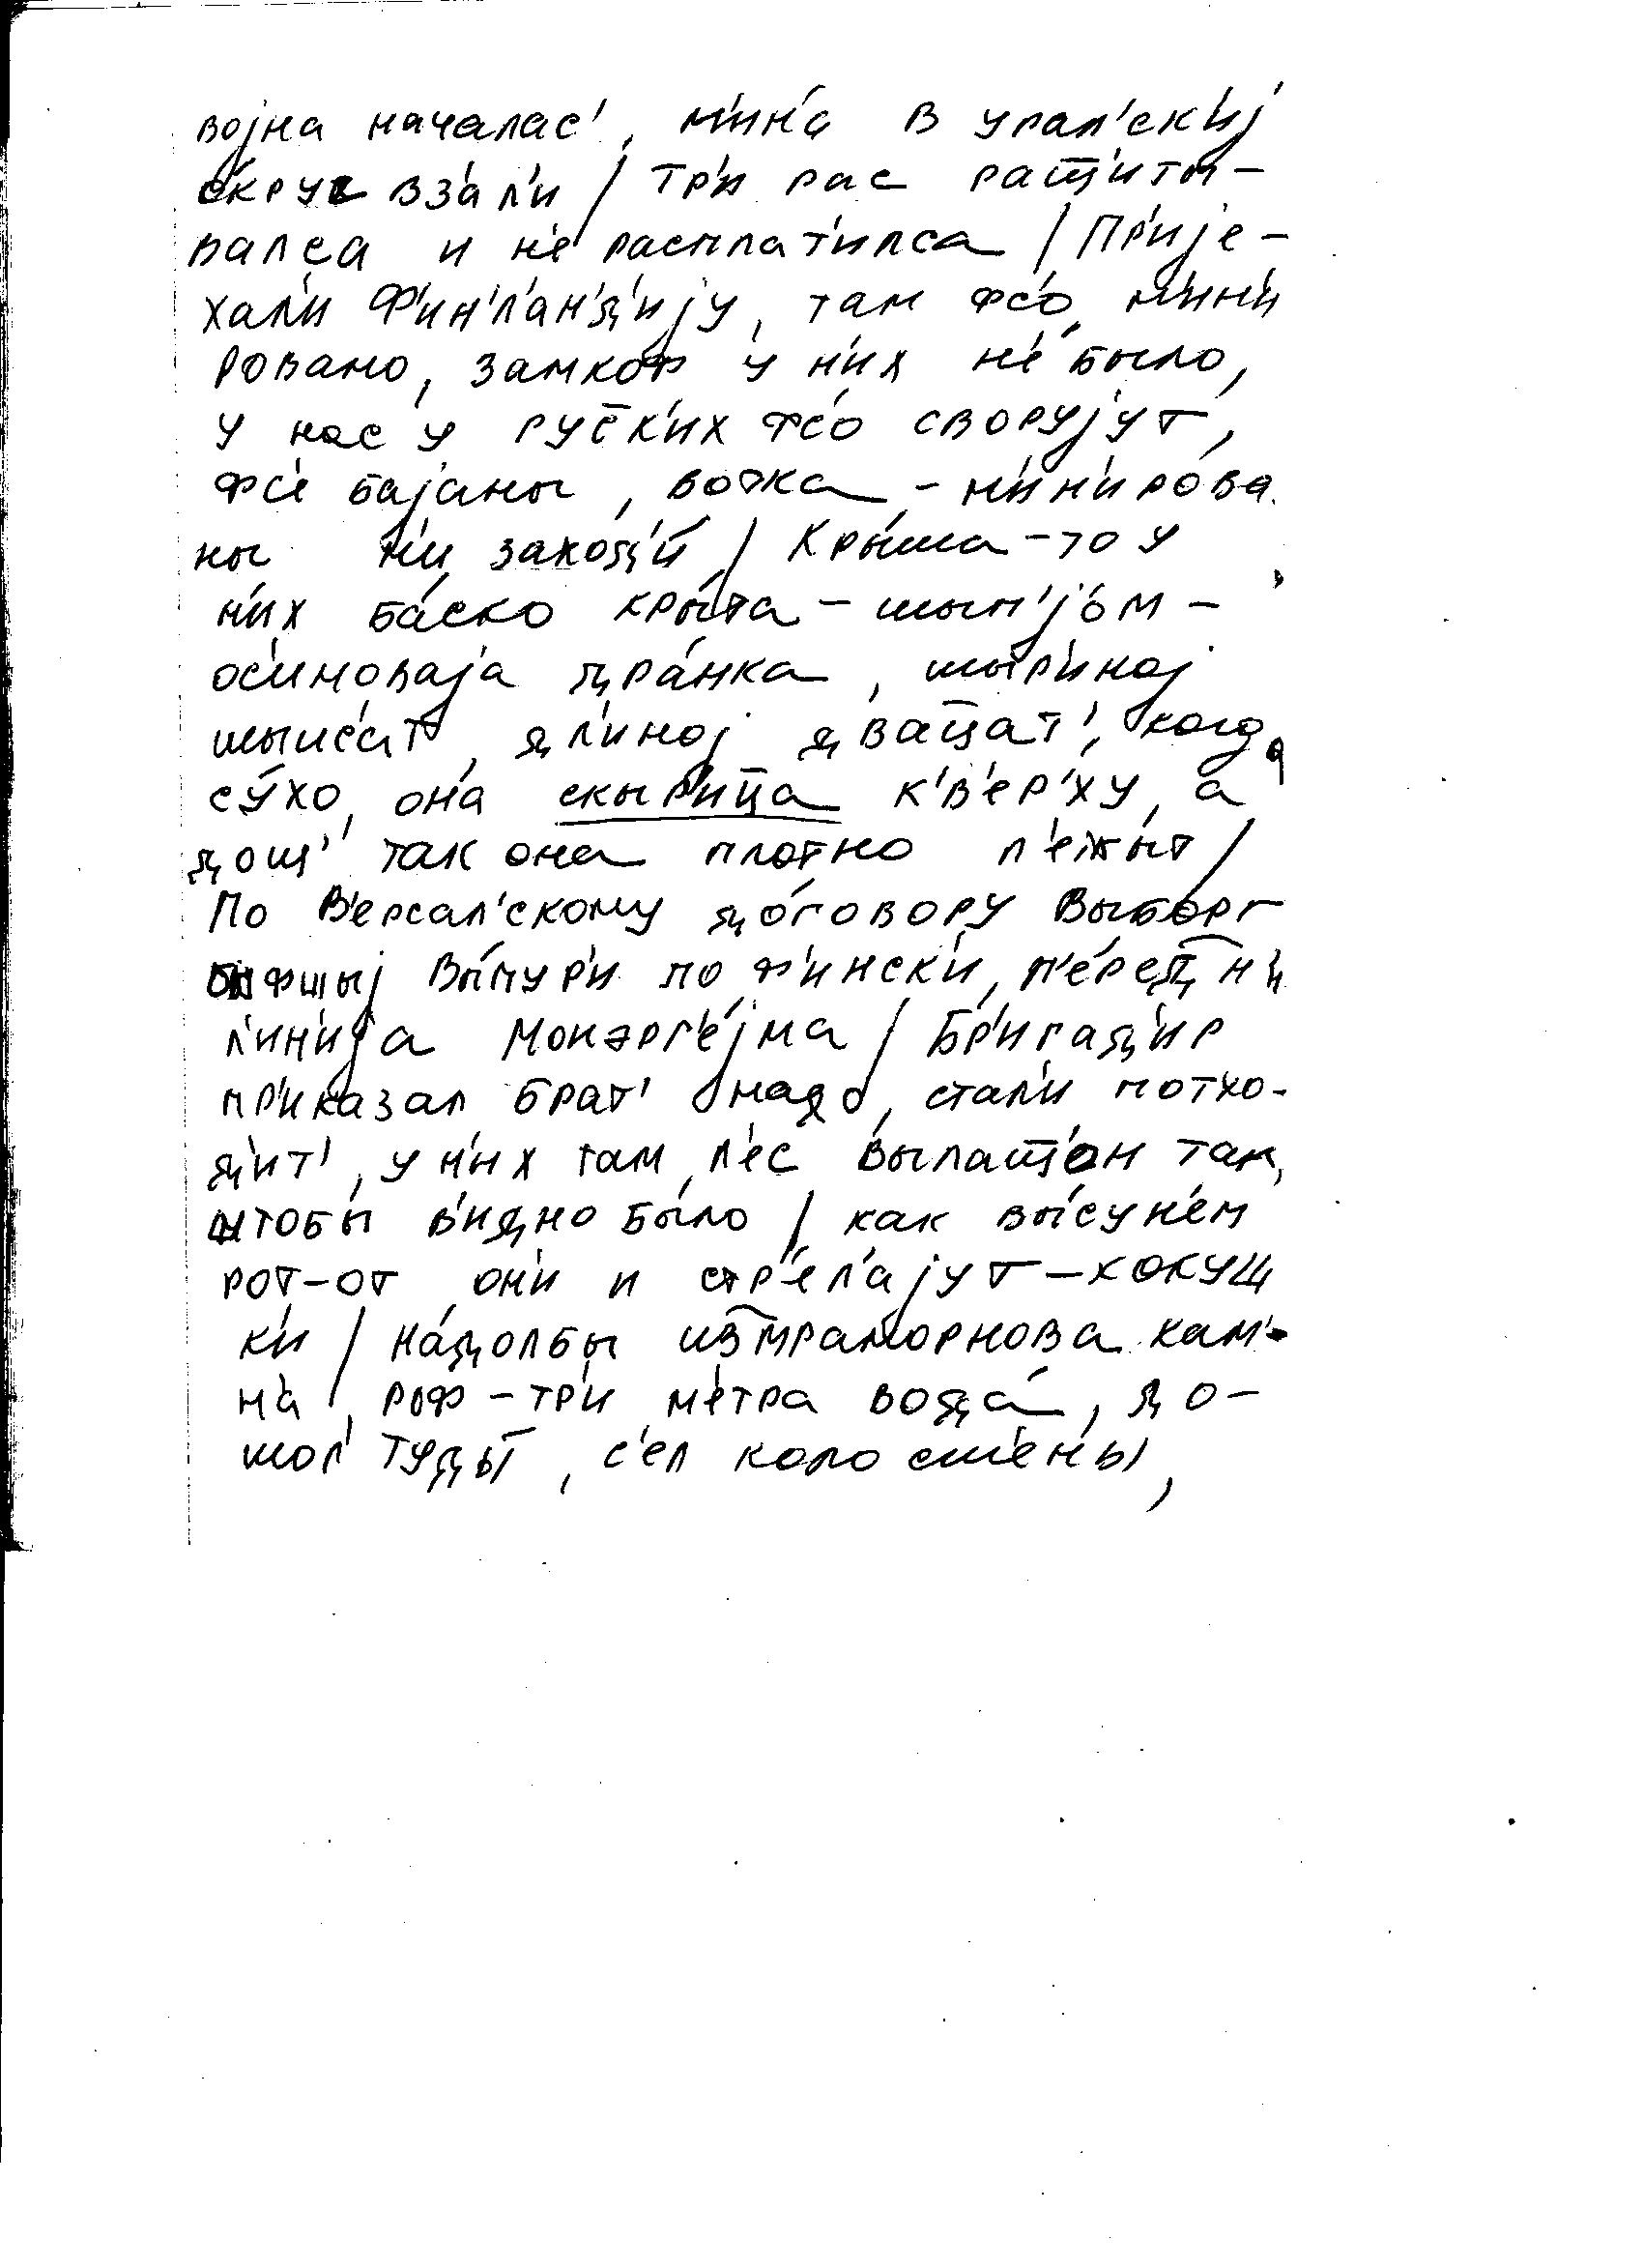 војна началас', м'ин'а в урал'ск'иј
о́круг вз'ал'и / тр'и рас ращ̅'иты-
валса и н'е расплат'илса / Пр'ије-
хал'и Ф'ин'л'ан'д'ију, там фс'о м'ин'и
ровано, замкоф у н'их н'е́ было,
у нас у рус̅к'их фс'о сворујут,
фс'е бајаны, вотка - м'ин'иро́ва
ны н'и заход'и̅ / Кры́ша-то у
н'их ба́ско кры́та - шып'јо́м -
ос'иноваја дра́нка, шыр'иној
шыис'ат, дл'иној двац̅ат', когда
су́хо, она скыр'иц̅а к'в'ер'ху, а
дощ' так она плотно л'ежыт /
По В'ерсал'скому до́говору Выборг
быфшыј Вы́пур'и по ф'ински, п'е́р'ед̅н'и
л'ин'ија Монэрг'е́јма / Бр'игад'ир
пр'иказал брат' надо, стал'и потхо-
д'ит', у н'их там л'ес вылащ̅'он так,
штобы в'идно было / как вы́сун'ем
рот-от он'и и стр'ел'ајут - кокущ
к'и / на́долбы из̅мраморнова кам'-
н'а, роф - тр'и м'етра вода́, до-
шол туды̅, с'ел коло ст'ены,